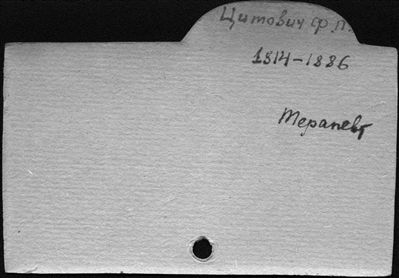 Цитович Ф.П.
1814-1886
Терапевт